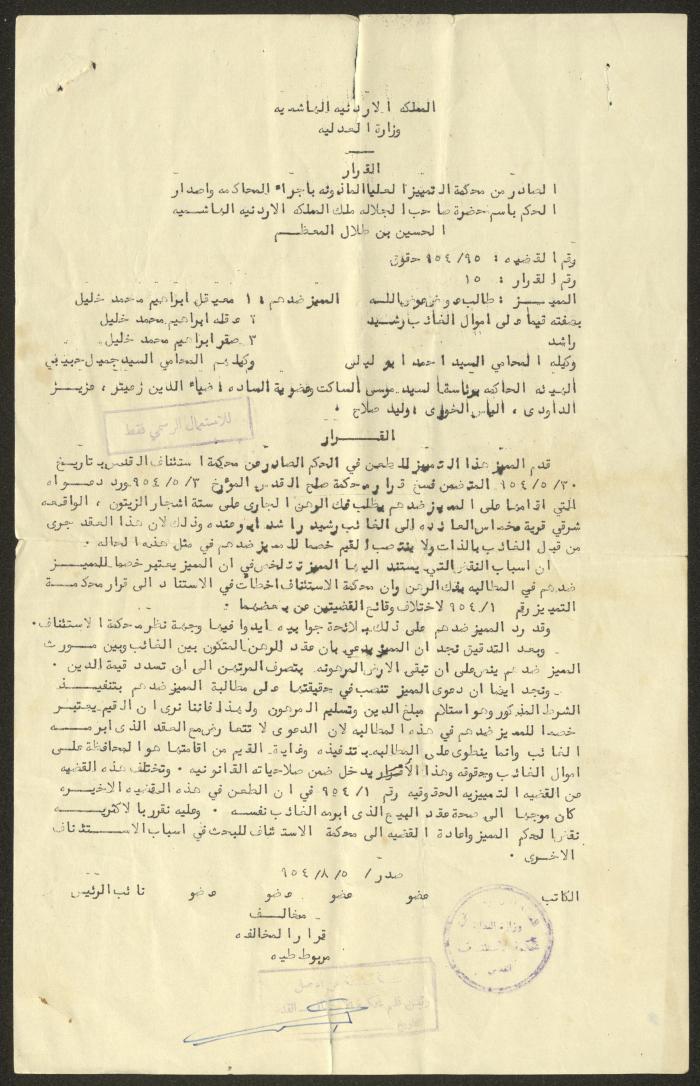 المملكه الاردنيه الهاشميه
وزارة العدليه
القرار
الصادر من محكمة التمييز العليا المأذونه باجراء المحاكمه واصدار
الحكم باسم حضرة صاحب الجلاله ملك المملكه الاردنيه الهاشميه
الحسين بن طلال المعظم
رقم القضيه : ٩٥/ ٩٥٤ حقوق
رقم القرار : ١٥
المميز : طالب عوض عوض الله المميز ضدهم : ١ معيقل ابراهيم محمد خليل
بصفته قيما على اموال الغائب رشيد ٢ عقله ابراهيم محمد خليل
راشد ٣ صقر ابراهيم محمد خليل
وكيله المحامي السيد احمد ابو ليلى وكيلهم المحامي السيد جميل حبيبي
الهيئه الحاكمه برئاسة السيد موسى الساكت وعضوية الساده : ضياء الدين زعيتر ، عزيز
الداودى ، الياس الخورى ، وليد صلاح .
للاستعمال الرسمي فقط
القرار
قدم المميز هذا التمييز للطعن في الحكم الصادر من محكمة استئناف القدس بتاريخ
٣٠/ ٥/ ٩٥٤ المتضمن فسخ قرار محكمة صلح القدس المؤرخ ٣/ ٥/ ٩٥٤ ورد دعواه
التي اقامها على المميز ضدهم بطلب فك الرهن الجارى على ستة اشجار الزيتون ، الواقعه
شرقي قرية مخماس العائده الى الغائب رشيد راشد ابو عنده وذلك لان هذا العقد جرى
من قبل الغائب بالذات ولا ينتصب القيم خصما للمميز ضدهم في مثل هذه الحاله .
ان اسباب النقض التي يستند اليها المميز تتلخص في ان المميز يعتبر خصما للمميز
ضدهم في المطالبه بفك الرهن وان محكمة الاستئناف اخطأت في الاستناد الى قرار محكمة
التمييز رقم ١/ ٩٥٤ لاختلاف وقائع القضيتين عن بعضهما .
وقد رد المميز ضدهم على ذلك بلائحة جوابيه ايدوا فيها وجهة نظر محكمة الاستئناف .
وبعد التدقيق نجد ان المميز يدعي بان عقد الرهن المتكون بين الغائب وبين مورث
المميز ضدهم ينص على ان تبقى الارض المرهونه بتصرف المرتهن الى ان تسدد قيمة الدين .
ونجد ايضا ان دعوى المميز تنصب في حقيقتها على مطالبة المميز ضدهم بتنفيذ
الشرط المذكور وهو استلام مبلغ الدين وتسليم المرهون ولهذا فاننا نرى ان القيم يعتبر
خصما للمميز ضدهم في هذه المطالبه لان الدعوى لا تتعارض مع العقد الذى ابرمه
الغائب وانما ينطوى على المطالبه بتنفيذه وغاية القيم من اقامتها هو المحافظة على
اموال الغائب وحقوقه وهذا يدخل ضمن صلاحياته القانونيه . وتختلف هذه القضيه
عن القضيه التمييزيه الحقوقيه رقم ١/ ٩٥٤ في ان الطعن في هذه القضيه الاخيره
كان موجها الى صحة عقد البيع الذى ابرمه الغائب نفسه . وعليه نقرر بالاكثريه
نقض الحكم المميز واعادة القضيه الى محكمة الاستئناف للبحث في اسباب الاستئناف
الاخرى .
صدر/ ٥/ ٨/ ٩٥٤
الكاتب عضو عضو عضو عضو نائب الرئيس
مخالف
قرار المخالفه
مربوط طيه
وزارة العدليه
القدس